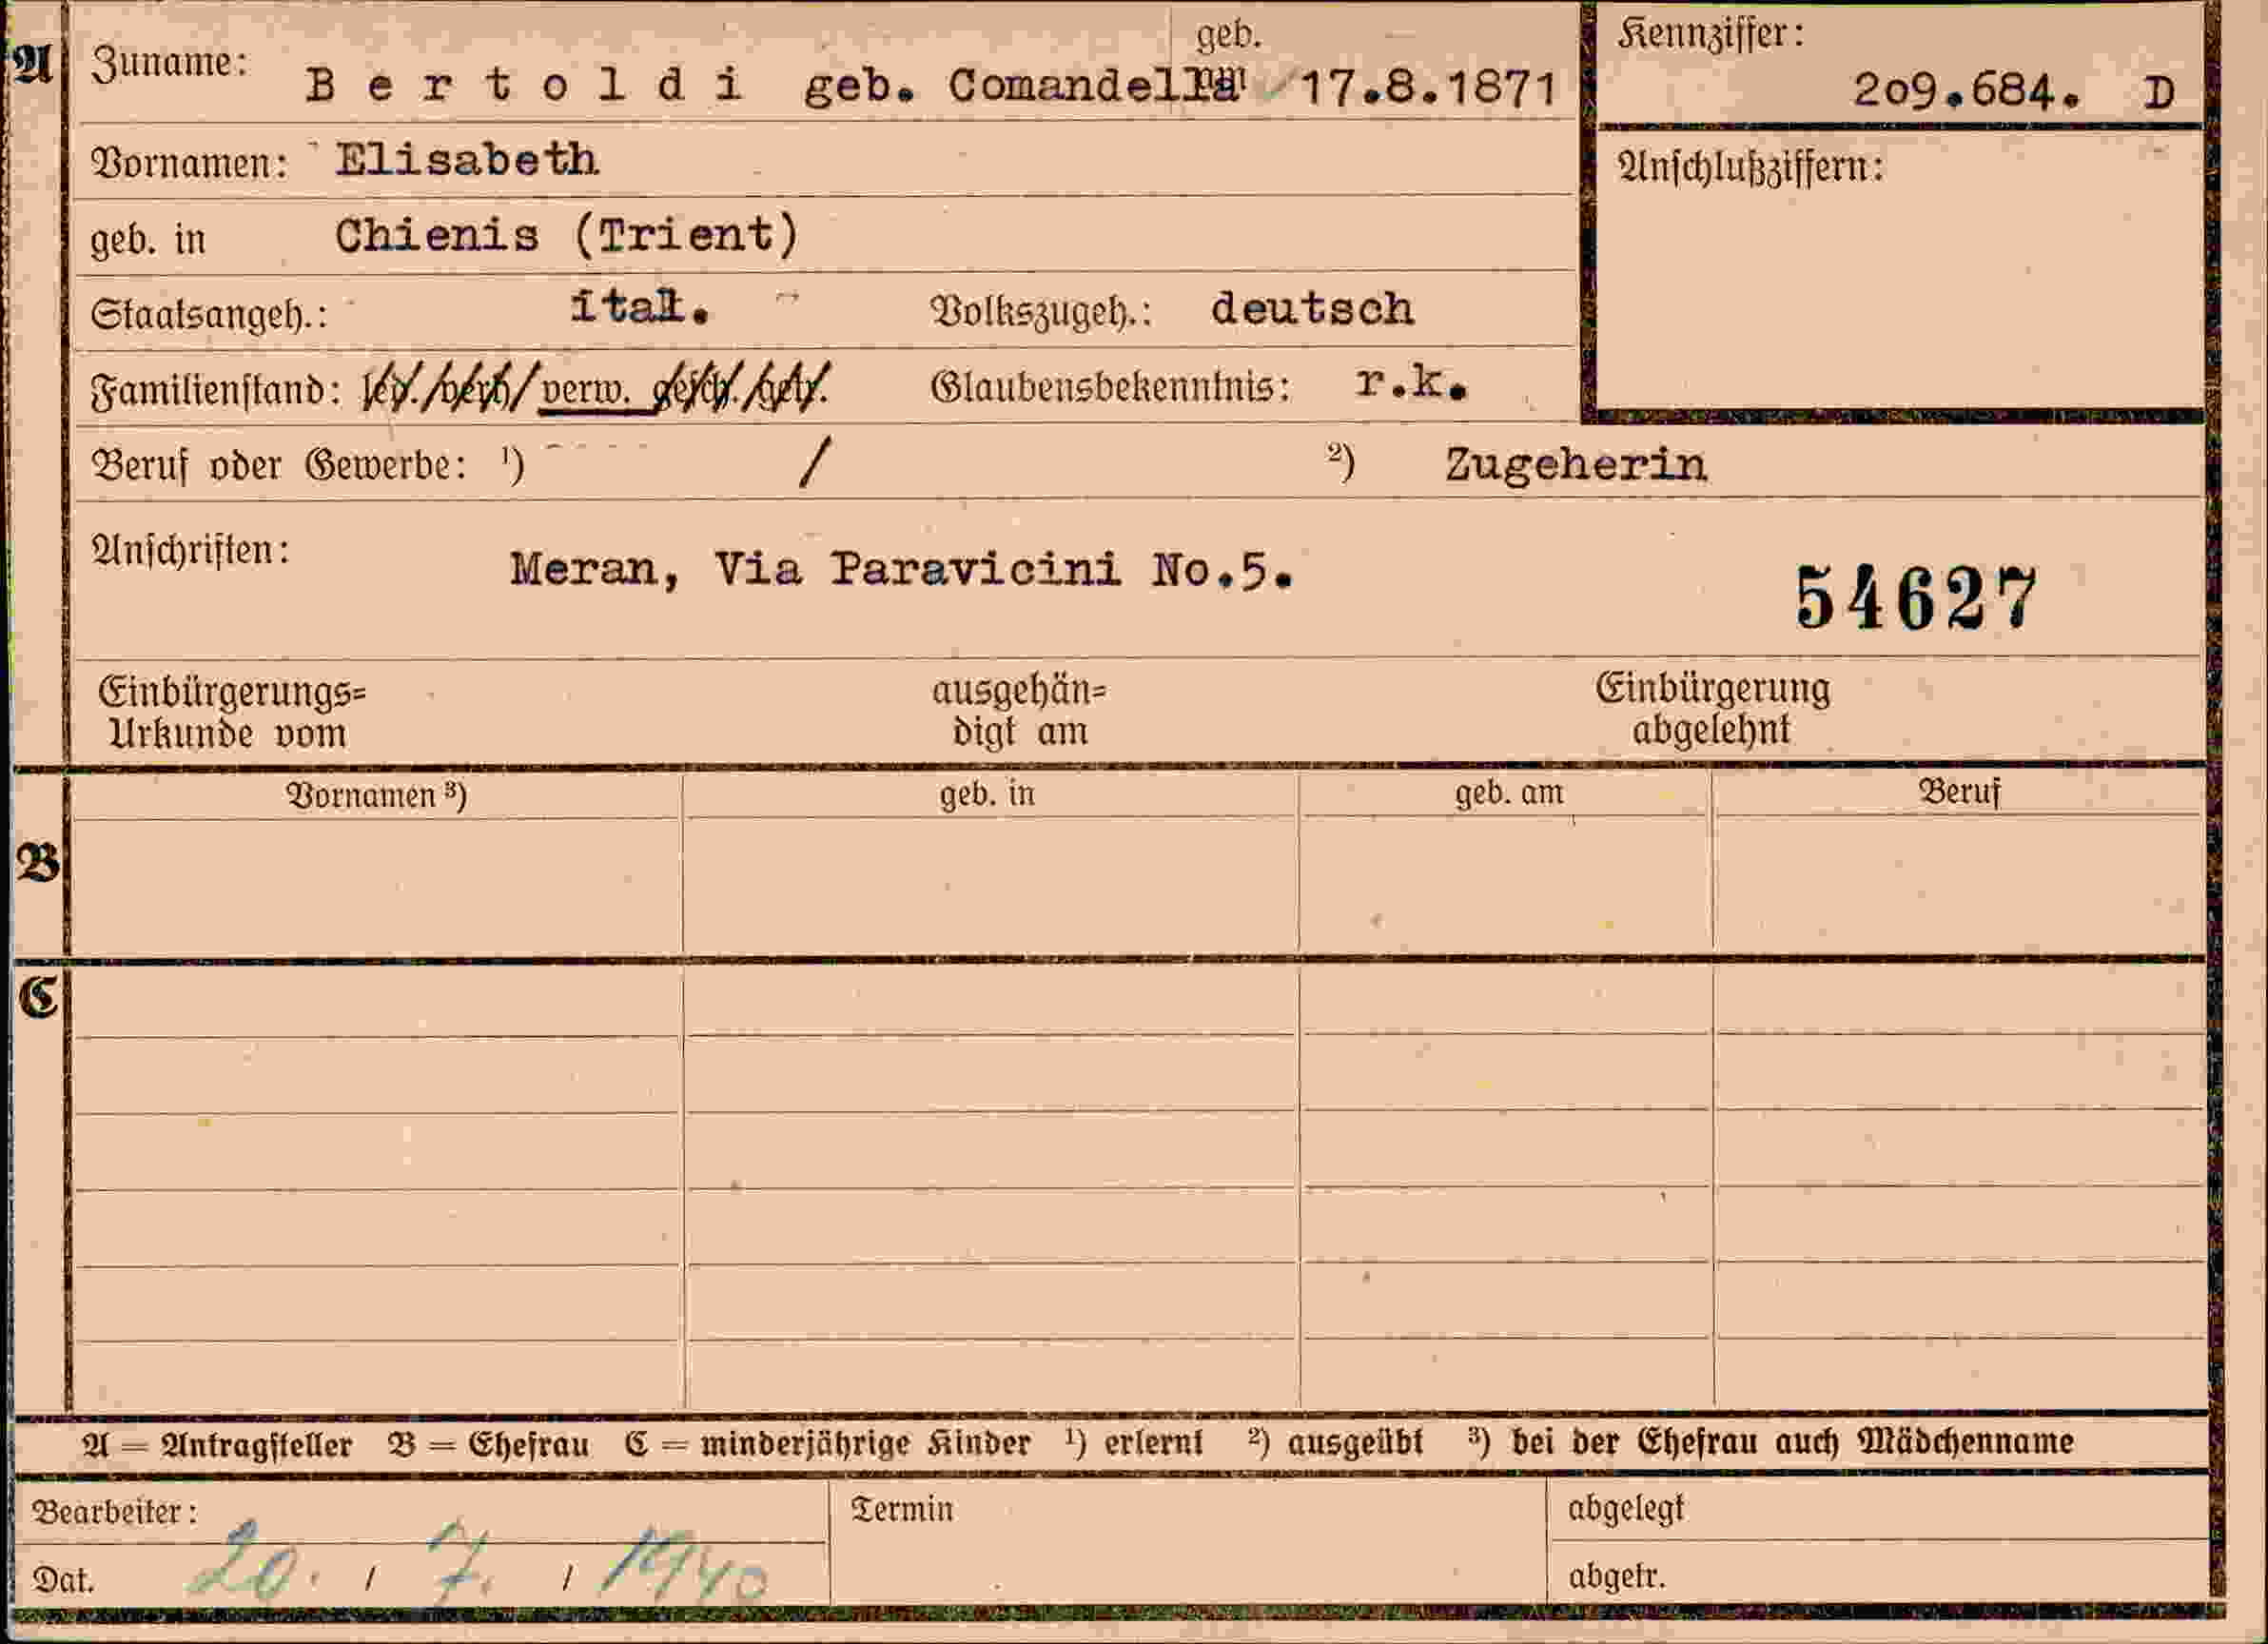 A Zuname: Bertoldi geb. Comandella geb. am 17.8.1871
Kennziffer:
209.684. D
Vornamen: Elisabeth
Anschlußziffern:
geb. in Chienis (Trient)
Staatsangeh.: ital. Volkszugeh.: deutsch
Familienstand: led./verh/verw. gesch./getr. Glaubensbekenntnis: r.k.
Beruf oder Gewerbe: ¹) / ²) Zugeherin
Anschriften: Meran, Via Paravicini No.5.
54627
Einbürgerungs=
Urkunde vom
ausgehän=
digt am
Einbürgerung
abgelehnt
Vornamen ³) geb. in geb. am Beruf
B
C
A = Antragsteller B = Ehefrau C = minderjährige Kinder ¹) erlernt ²) ausgeübt ³) bei der Ehefrau auch Mädchenname
Bearbeiter: Termin abgelegt
Dat. 20. / 7. / 1940 abgetr.